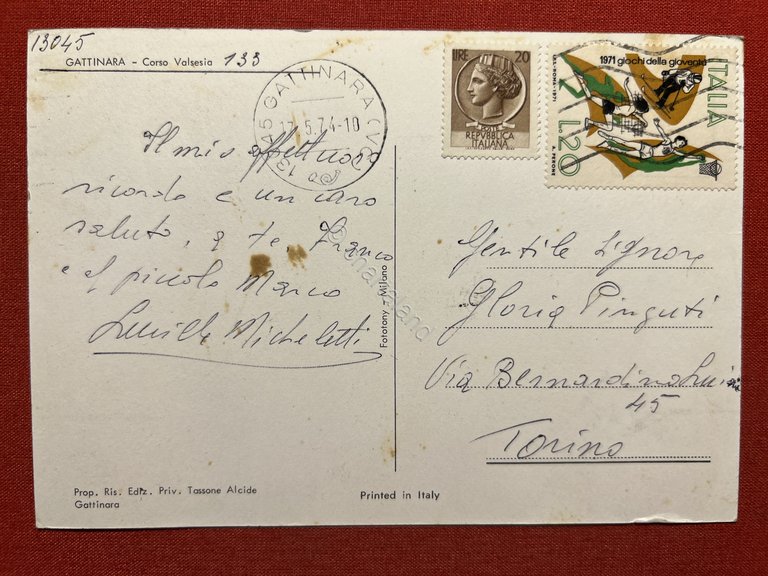 13045
GATTINARA - Corso Valsesia 133
13045 GATTINARA (VC)
17.5.74-10
LIRE 20
POSTE
REPVBBLICA
ITALIANA
1971 giochi della gioventù
ITALIA
L.20
Il mio affettuoso
ricordo e un caro
saluto, a te, Franco
e al piccolo Marco
Lucille Micheletti
Fototony - Milano
Gentile Signora
Gloria Pinguti
Via Bernardino Luini
45
Torino
Prop. Ris. Ediz. Priv. Tassone Alcide
Gattinara
Printed in Italy